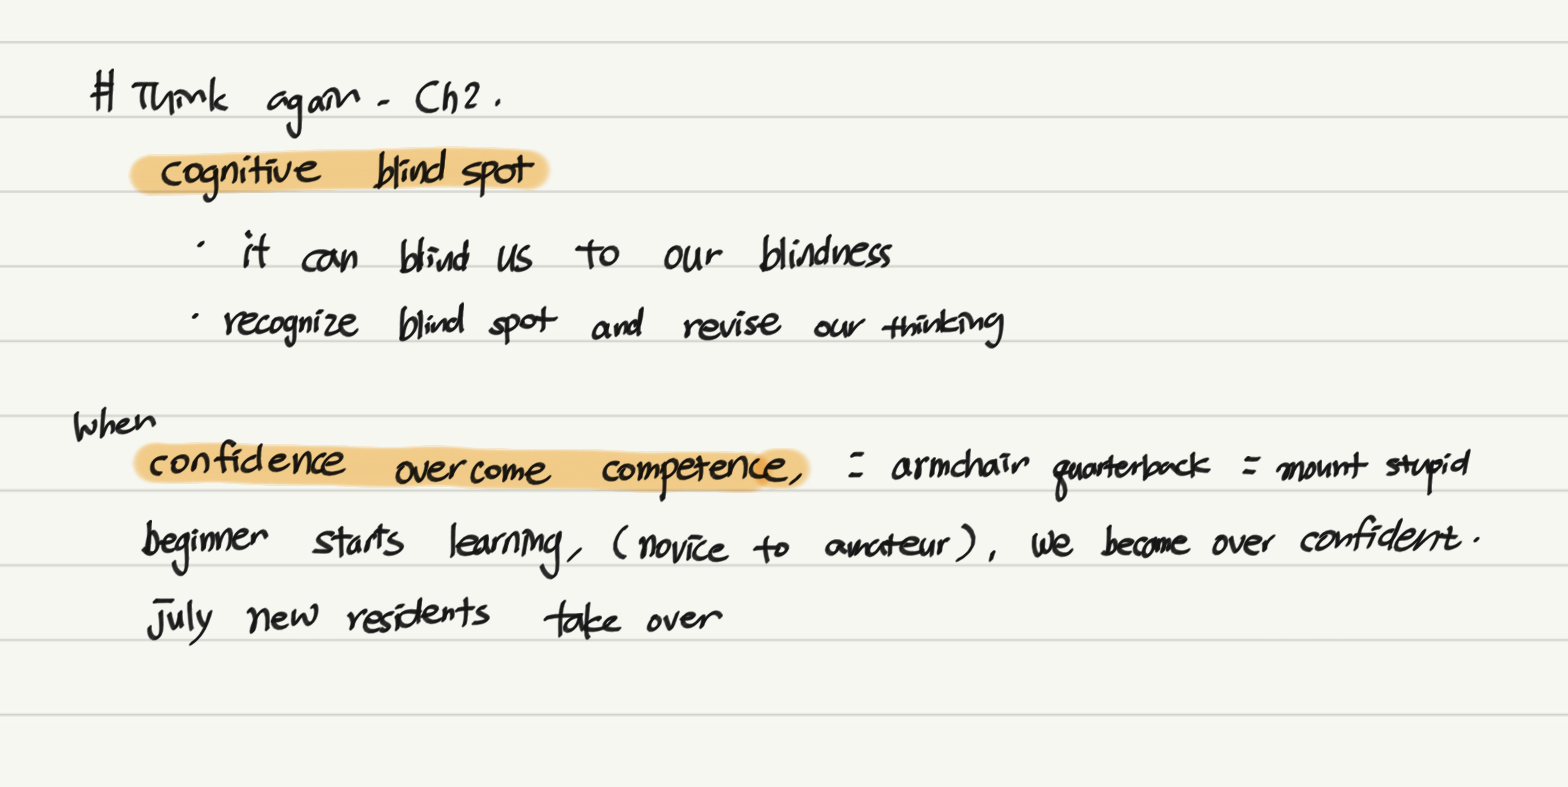 # Think again - Ch2.
cognitive blind spot
· it can blind us to our blindness
· recognize blind spot and revise our thinking
when
confidence overcome competence, = armchair quarterback = mount stupid
beginner starts learning, (novice to amateur), we become over confident.
july new residents take over